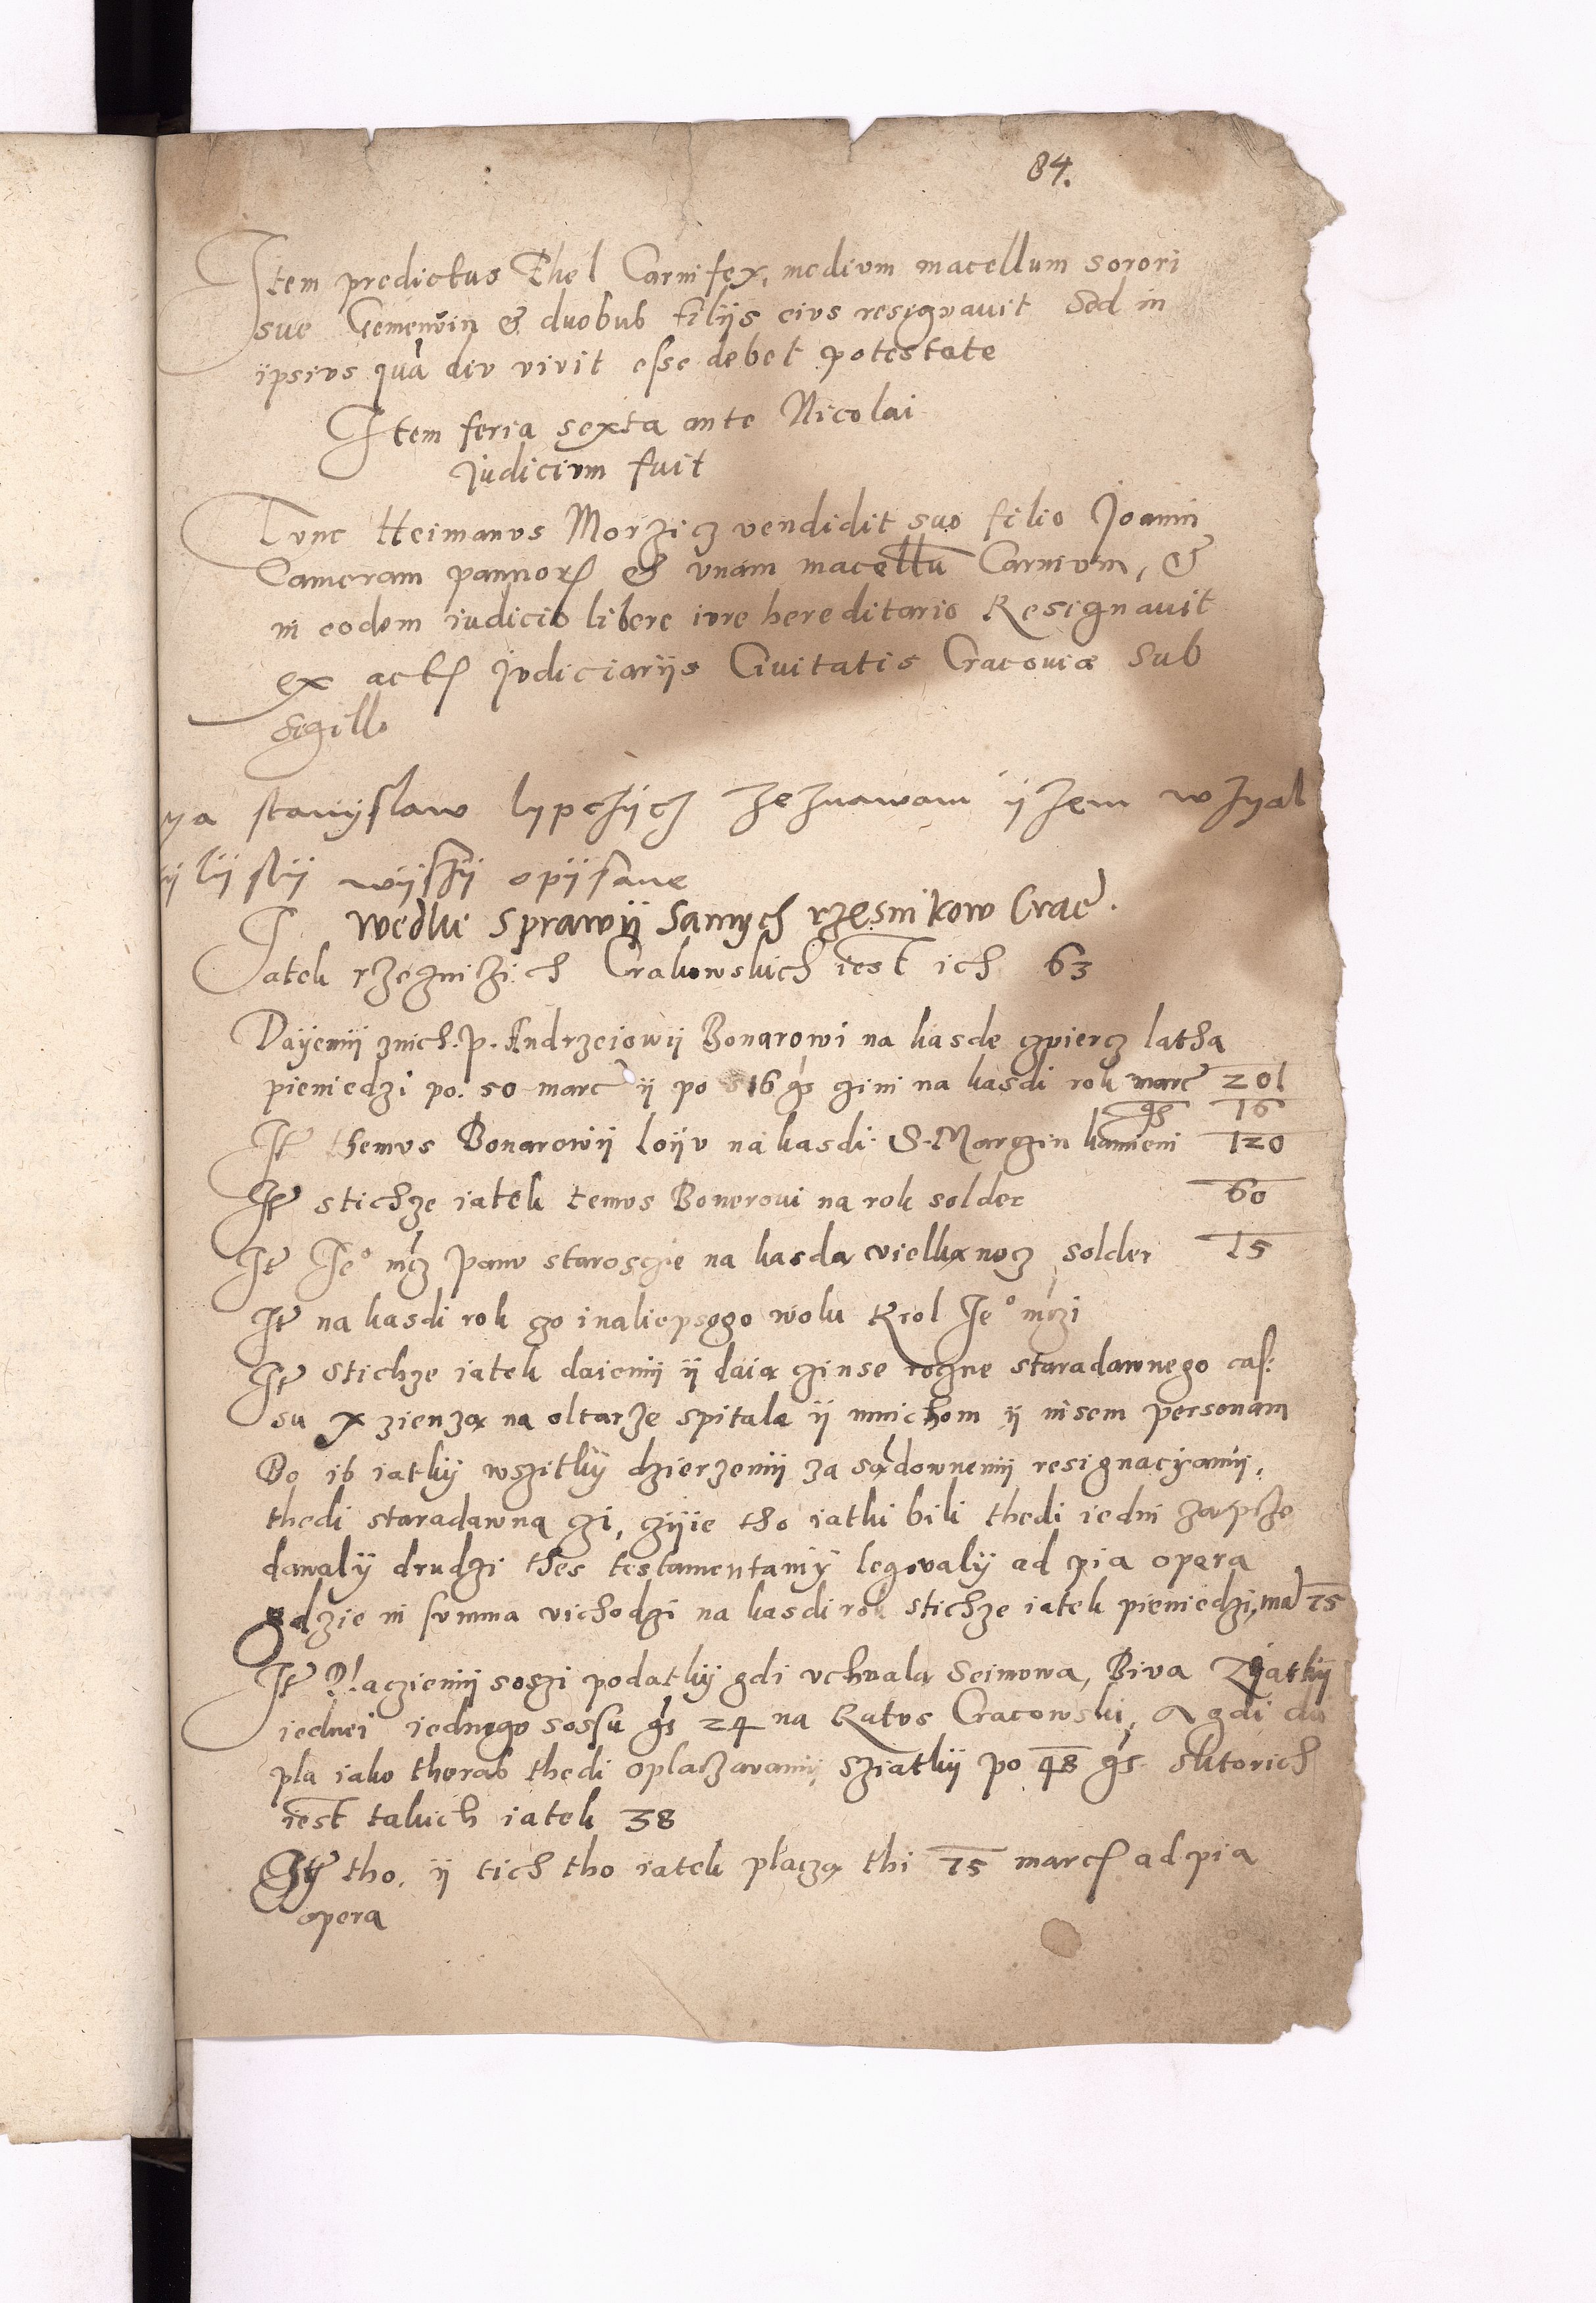 84.
Item predictus Thel Carnifex, medium macellum sorori
sue Gemenvin & duobus filijs eius resignauit Sed in
ipsius qua diu vivit esse debet potestate
Item feria sexta ante Nicolai
judicium fuit
Tunc Heimanus Morzicz vendidit suo filio Joanni
Cameram pannorꝭ & unam macellū Carnium, &
in eodem iudicio libere iure hereditario Resignauit
ex actꝭ judiciarijs Civitatis Cracoviæ sub
sigillo
ya stanyslaw lypczycz zeznawam yzem wzyal
ty lysty wyszy opysane
Wedlie sprawÿ samych rzesnikow Crac.
Jatek rzeznizich Crakowskich iest ich 63
Dayemÿ znich. p. Andrzeiowÿ Bonarowi na kasde czpiercz latha
pieniedzi po. 50 marc ÿ po 16 gs gini na kasdi rok marc 201
gs 16
It themus Bonarowÿ loÿu na kasdi S. Marczin kamieni 120
It stichze iatek temus Boneroui na rok solder 60
It Je° mcz panu starosczie na kasda wielkanocz solder 15
It na kasdi rok go inaliepsego wolu Krol Je° mczi
It stichze iatek daiemÿ ÿ daia czinse roczne staradawnego cas:
su xzienza na oltarze spitale ÿ mnichom ÿ insem personam
Bo ib iatkÿ wszitkÿ dzierzemÿ za sadownemÿ resignacyamÿ,
thedi staradawna gi, gÿie tho iatki bili thedi iedni zapsze
dawalÿ drudzi thes testamentamÿ legovalÿ ad pia opera
gdzie in summa vichodzi na kasdi rok stichze iatek pieniedzi, ma 75
It Placziemÿ soszi podatkÿ gdi vchvala Seimowa, Biva Zjatkÿ
iednei iednego sossu gs 24 na Ratus Cracowski, A gdi du
pla iako theras thedi oplaczavamÿ sziatkÿ po 48 gs sktorich
iest takich iatek 38
Itē tho. ÿ tich tho iatek placza thi 75 marcꝭ ad pia
opera